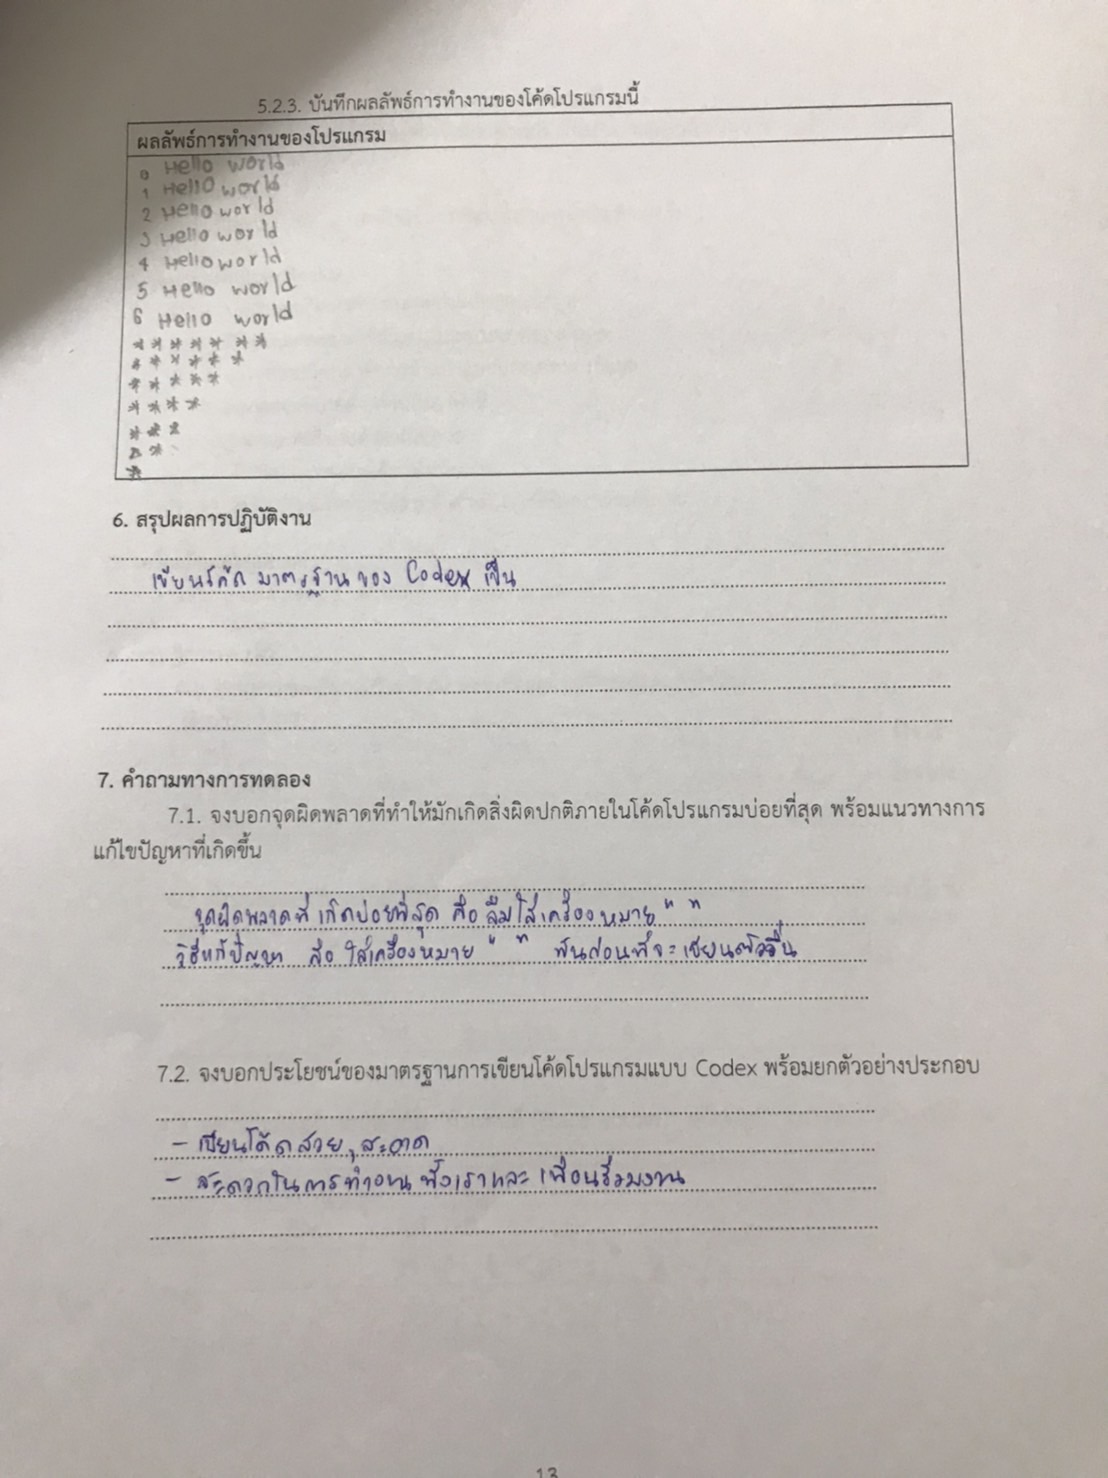 5.2.3. บันทึกผลลัพธ์การทำงานของโค้ดโปรแกรมนี้
ผลลัพธ์การทำงานของโปรแกรม
0 Hello World
1 Hello world
2 Hello world
3 Hello world
4 Hello world
5 Hello world
6 Hello world
* * * * * * *
* * * * * *
* * * * *
* * * *
* * *
* *
*
6. สรุปผลการปฏิบัติงาน
เขียนโค้ด มาตรฐาน ของ Codex เป็น
7. คำถามทางการทดลอง
7.1. จงบอกจุดผิดพลาดที่ทำให้มักเกิดสิ่งผิดปกติภายในโค้ดโปรแกรมบ่อยที่สุด พร้อมแนวทางการ
แก้ไขปัญหาที่เกิดขึ้น
จุดผิดพลาดที่ เกิดบ่อยที่สุด คือ ลืมใส่เครื่องหมาย " "
วิธีแก้ปัญหา คือ ใส่เครื่องหมาย " " ก่อนที่จะ เขียนตัวอื่น
7.2. จงบอกประโยชน์ของมาตรฐานการเขียนโค้ดโปรแกรมแบบ Codex พร้อมยกตัวอย่างประกอบ
- เขียนโค้ด สวย, สะอาด
- สะดวกในการทำงาน ทั้งเราและ เพื่อนร่วมงาน
13